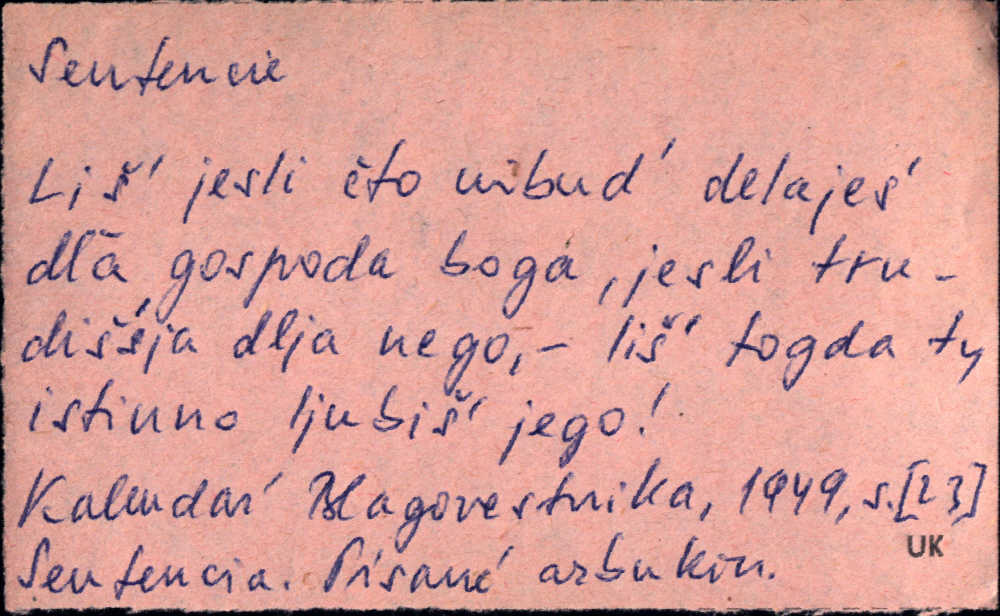 Sentencie
Liš' jesli što nibud' delaješ'
dľa gospoda boga, jesli tru-
dišśja dlja nego, - liš' togda ty
istinno ljubiš' jego!
Kalendař Blagovestnika, 1949, s.[23]
UK
Sentencia. Písané azbukou.